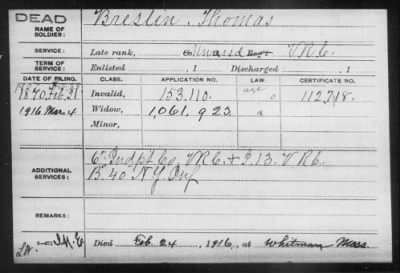 DEAD
NAME OF SOLDIER: Breslin, Thomas
SERVICE: Late rank, Unassd Regt V.R.C.
TERM OF SERVICE: Enlisted , 1 Discharged , 1
DATE OF FILING. CLASS. APPLICATION NO. LAW. CERTIFICATE NO.
1870 Feb. 21 Invalid, 153.110. 112,718.
1916 Mar. 4 Widow, 1,061,923 a
Minor,
ADDITIONAL SERVICES: 6" Indpt Co. V.R.C. + I. 13. V.R.C.
B. 40 N.Y. Inf
REMARKS:
Died Feb. 24, 1916, at Whitman Mass.